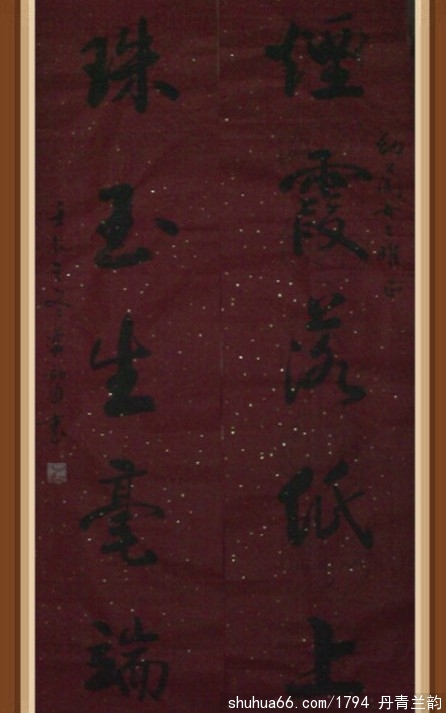 煙霞落紙上
珠玉生毫端
shuhua66.com/1794 丹青兰韵